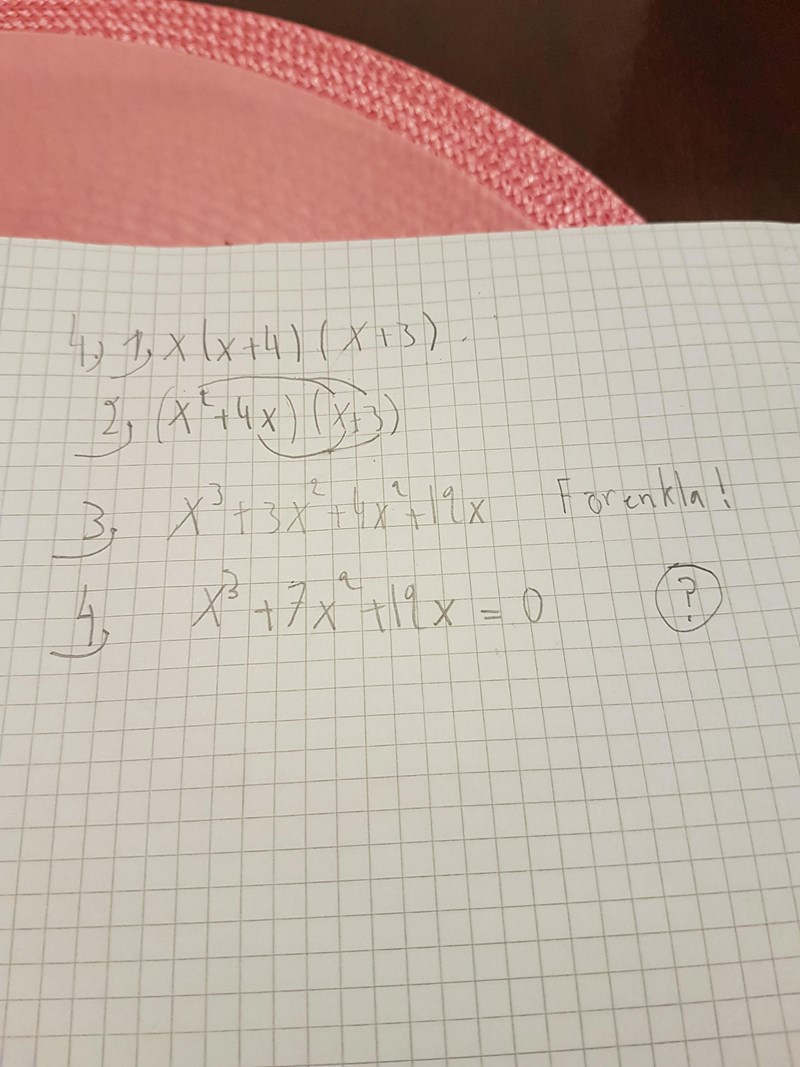 4, 1, x(x+4)(x+3).
2, (x²+4x)(x+3)
3, x³+3x²+4x²+12x Förenkla!
4, x³+7x²+12x=0 ?